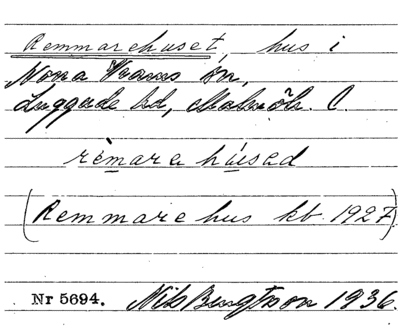 Remmarehuset, hus i
Norra Vrams sn,
Luggude hd, Malmöh. l.
rèmarehúsad
(Remmare hus kb. 1927)
Nr 5694. Nils Bengtsson 1936.